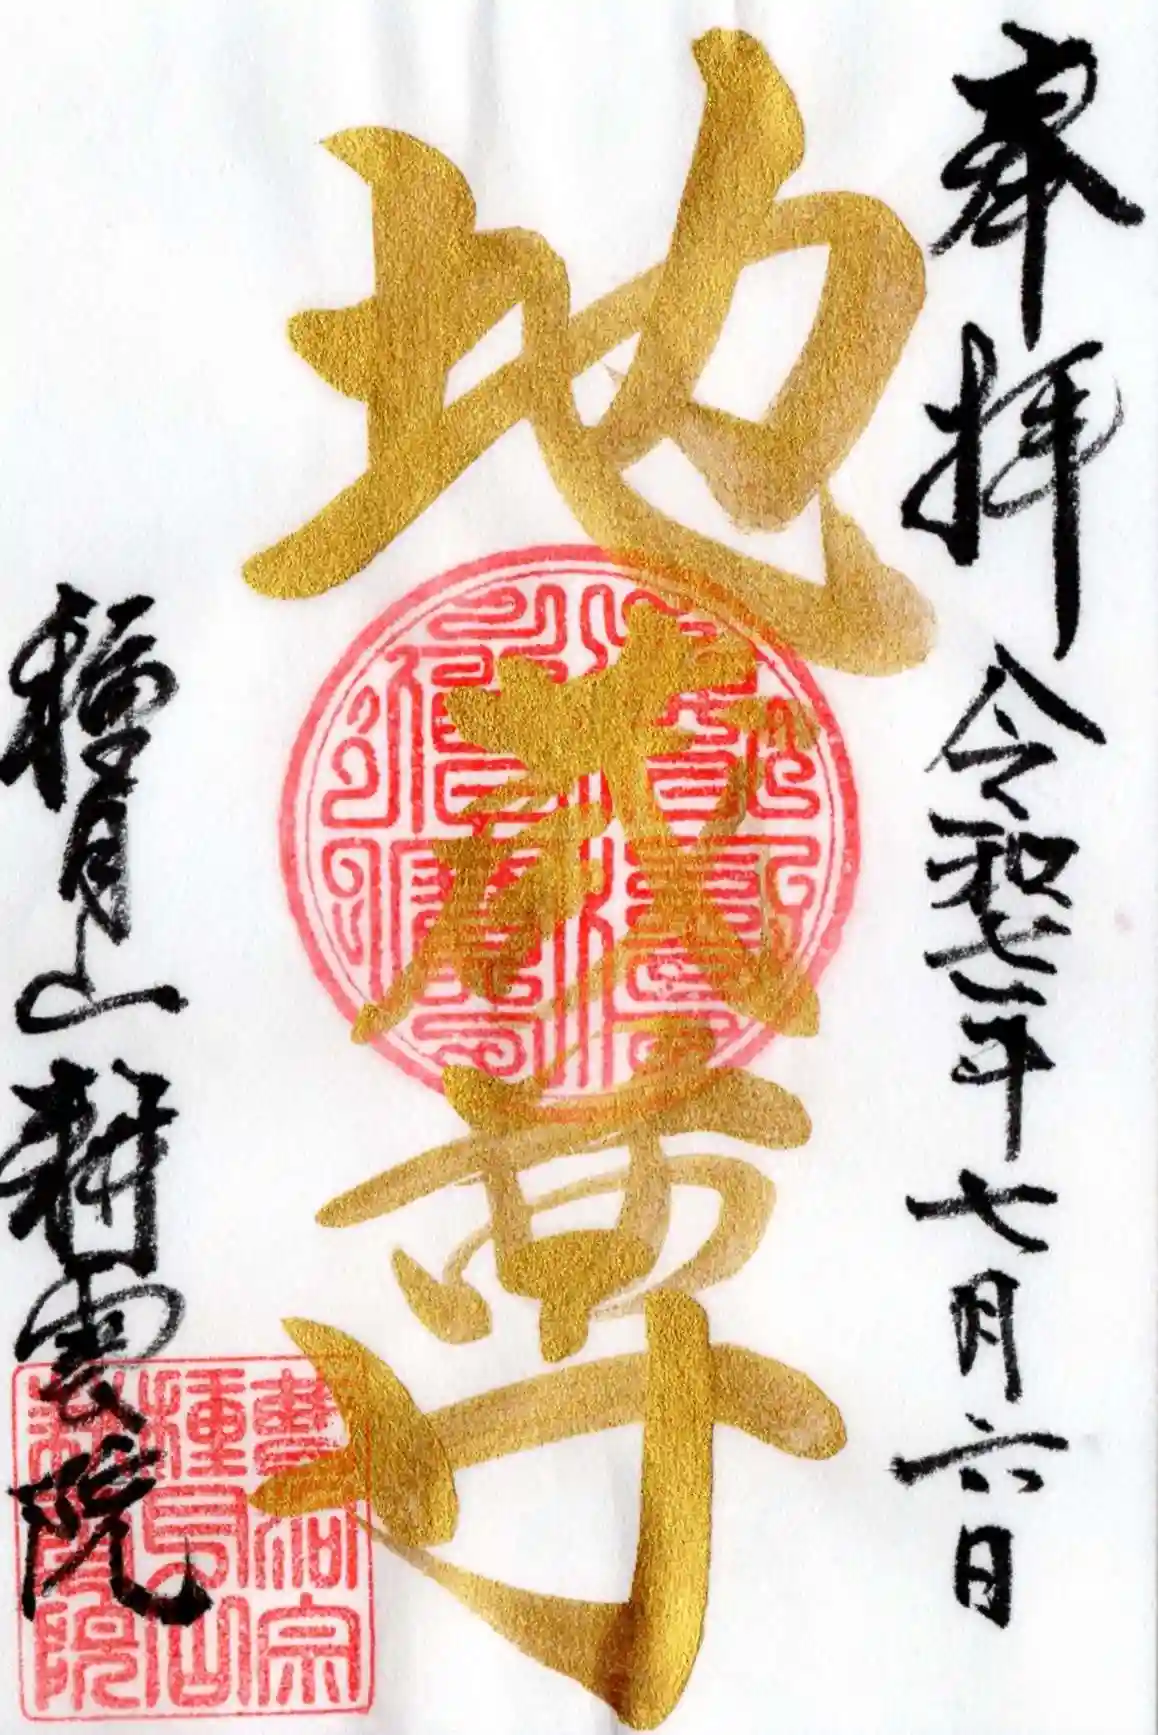 奉拝 令和七年七月六日
地蔵尊
種月山 耕雲院
曹洞宗
種月山
耕雲院